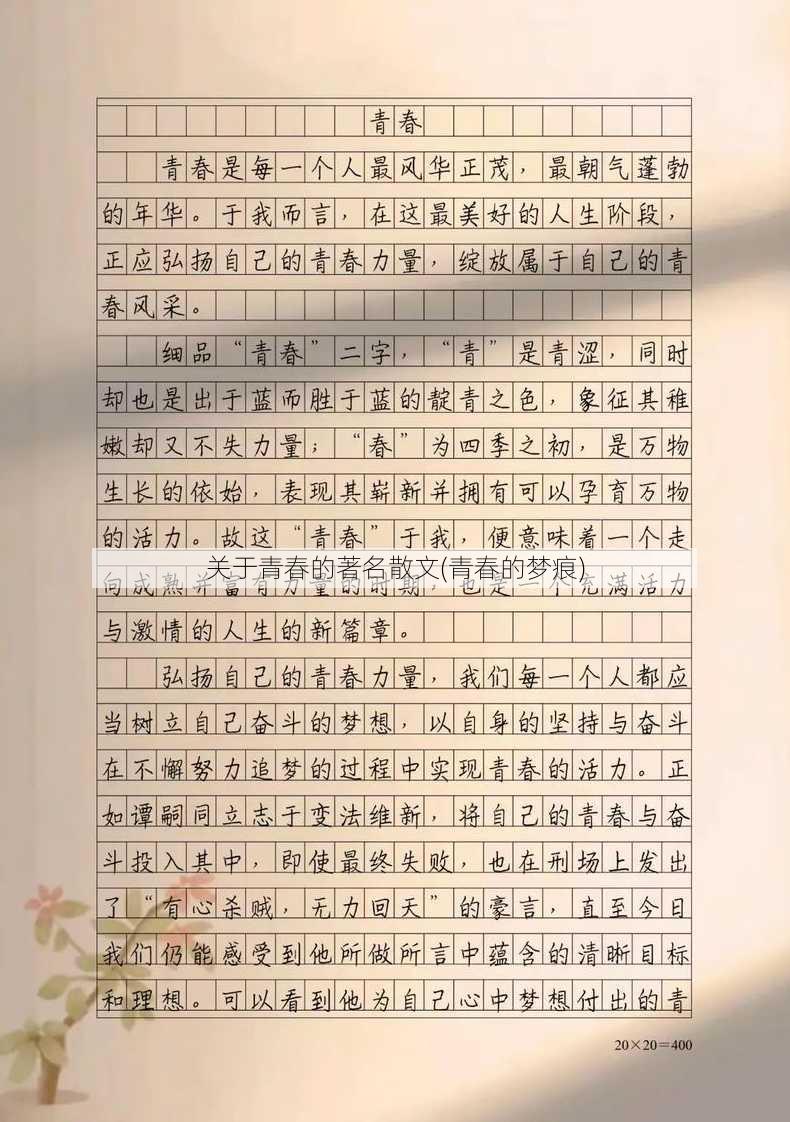 青春
青春是每一个人最风华正茂，最朝气蓬勃
的年华。于我而言，在这最美好的人生阶段，
正应弘扬自己的青春力量，绽放属于自己的青
春风采。
细品“青春”二字，“青”是青涩，同时
却也是出于蓝而胜于蓝的靛青之色，象征其稚
嫩却又不失力量；“春”为四季之初，是万物
生长的依始，表现其崭新并拥有可以孕育万物
的活力。故这“青春”于我，便意味着一个走
关于青春的著名散文(青春的梦痕)
向成熟并富有力量的时期，也是一个充满活力
与激情的人生的新篇章。
弘扬自己的青春力量，我们每一个人都应
当树立自己奋斗的梦想，以自身的坚持与奋斗
在不懈努力追梦的过程中实现青春的活力。正
如谭嗣同立志于变法维新，将自己的青春与奋
斗投入其中，即使最终失败，也在刑场上发出
了“有心杀贼，无力回天”的豪言，直至今日
我们仍能感受到他所做所言中蕴含的清晰目标
和理想。可以看到他为自己心中梦想付出的青
20×20=400